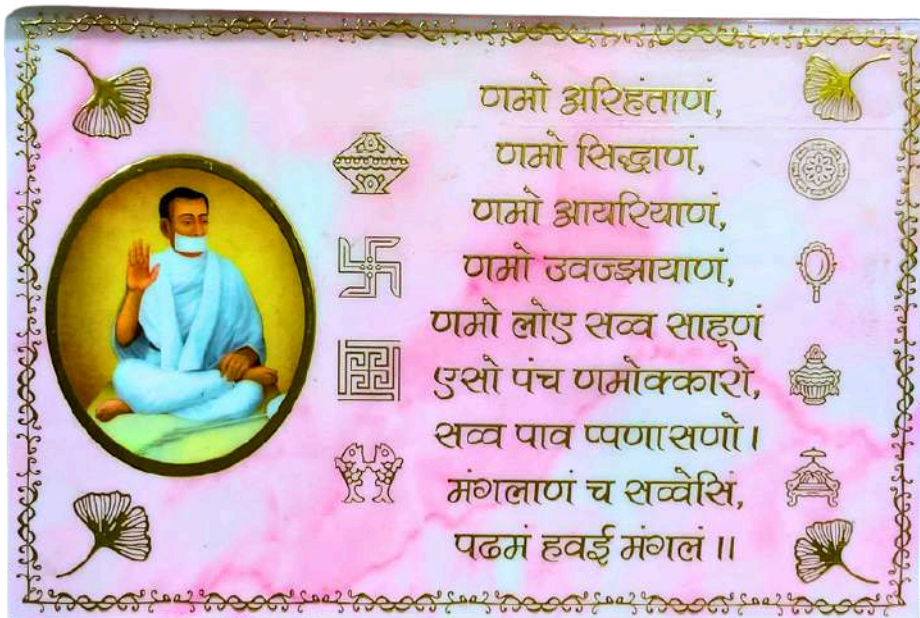 णमो अरिहंताणं,
णमो सिद्धाणं,
णमो आयरियाणं,
णमो उवज्झायाणं,
णमो लोए सव्व साहूणं
एसो पंच णमोक्कारो,
सव्व पाव प्पणासणो।
मंगलाणं च सव्वेसिं,
पढमं हवई मंगलं॥